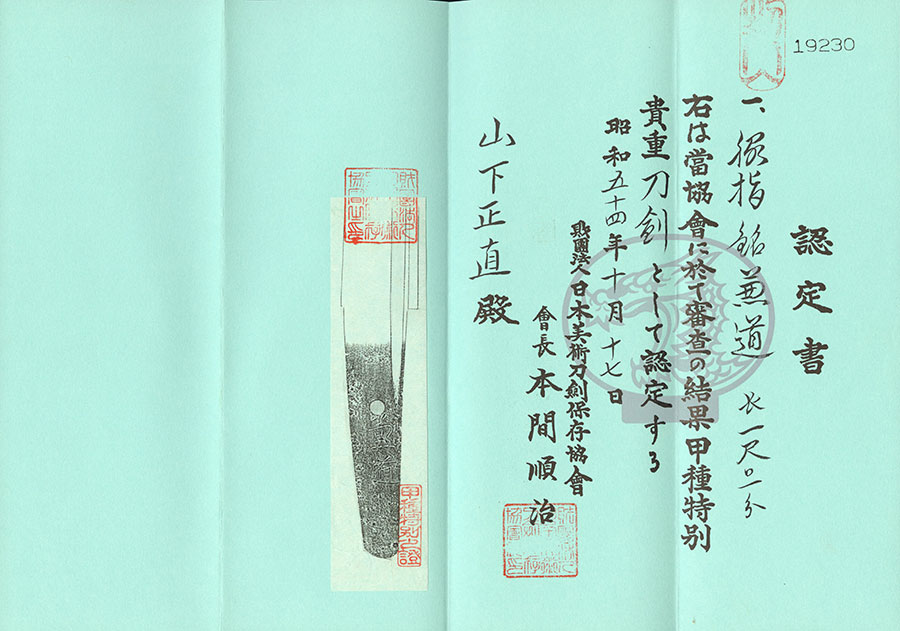 19230
認定書
一、脇指 銘 兼道 長一尺〇一分
右は當協會に於て審査の結果甲種特別
貴重刀剣として認定する
昭和五十四年十月十七日
財團法人日本美術刀劍保存協會
會長 本間順治
山下正直殿
甲種特別之證